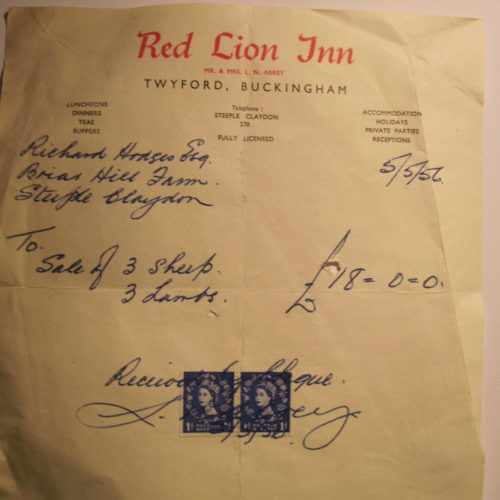 Red Lion Inn
MR. & MRS. L. N. ABREY
TWYFORD, BUCKINGHAM
LUNCHEONS
DINNERS
TEAS
SUPPERS
Telephone :
STEEPLE CLAYDON
278
FULLY LICENSED
ACCOMMODATION
HOLIDAYS
PRIVATE PARTIES
RECEPTIONS
Richard Hodges Esq.
Briar Hill Farm.
Steeple Claydon
5/5/56.
To.
Sale of 3 sheep.
3 Lambs.
£18=0=0.
Received by Cheque.
1D 1D